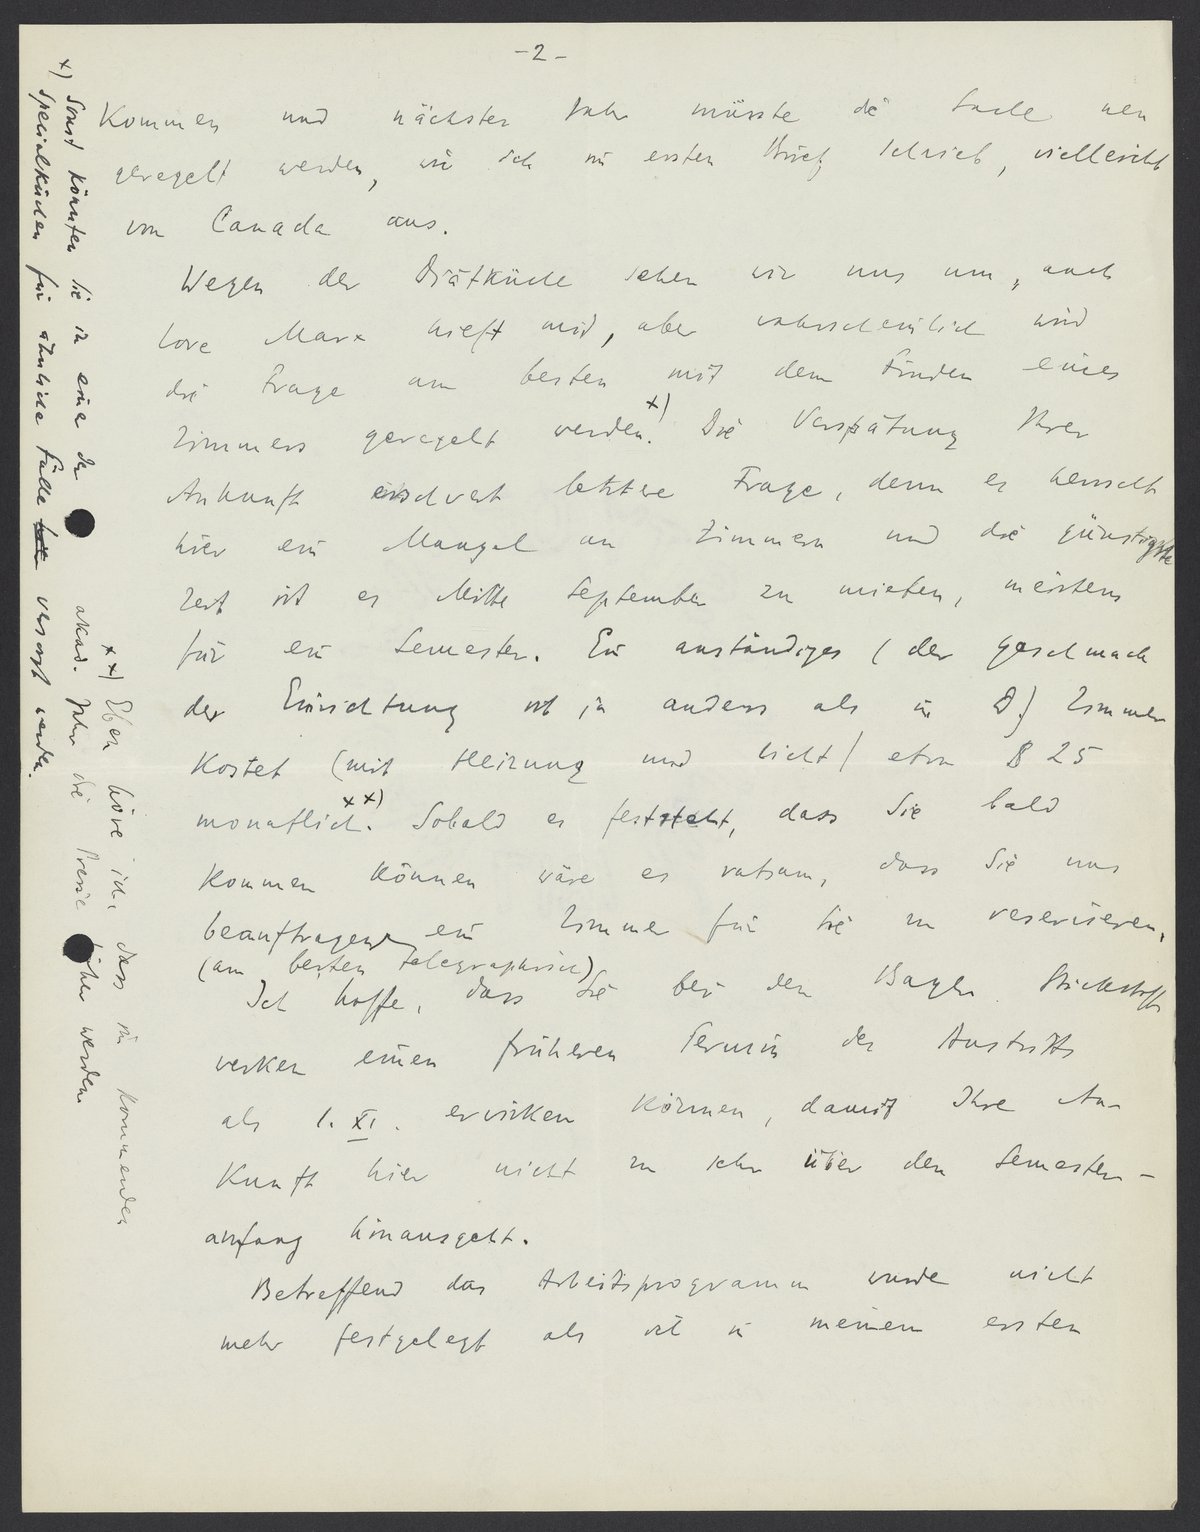 -2-
Kommen und nächstes Jahr müsste die Sache neu
geregelt werden, wie ich im ersten Brief schrieb, vielleicht
von Canada aus.
Wegen der Diätküche sehen wir uns um, auch
Lore Marx hilft mit, aber wahrscheinlich wird
die Frage am besten mit dem Finden eines
Zimmers geregelt werden. x) Die Verspätung Ihrer
Ankunft erschwert letztere Frage, denn es herrscht
hier ein Mangel an Zimmern und die günstigste
Zeit ist es Mitte September zu mieten, meistens
für ein Semester. Ein anständiges (der Geschmack
der Einrichtung ist ja anders als in D.) Zimmer
kostet (mit Heizung und Licht) etwa $ 25
monatlich. xx) Sobald es feststeht, dass Sie bald
kommen können wäre es ratsam, dass Sie uns
beauftragen ein Zimmer für Sie zu reservieren.
(am besten telegraphisch)
Ich hoffe, dass Sie bei den Bayer. Stickstoff
werken einen früheren Termin des Austritts
als 1. XI. erwirken können, damit Ihre An-
kunft hier nicht zu sehr über den Semester-
anfang hinausgeht.
Betreffend das Arbeitsprogramm wurde nicht
mehr festgelegt als ich in meinem ersten
x) Sonst könnten Sie in eine der
Spezialküchen für ähnliche Fälle versorgt werden.
xx) Eben höre ich, dass im kommenden
akad. Jahr die Preise höher werden